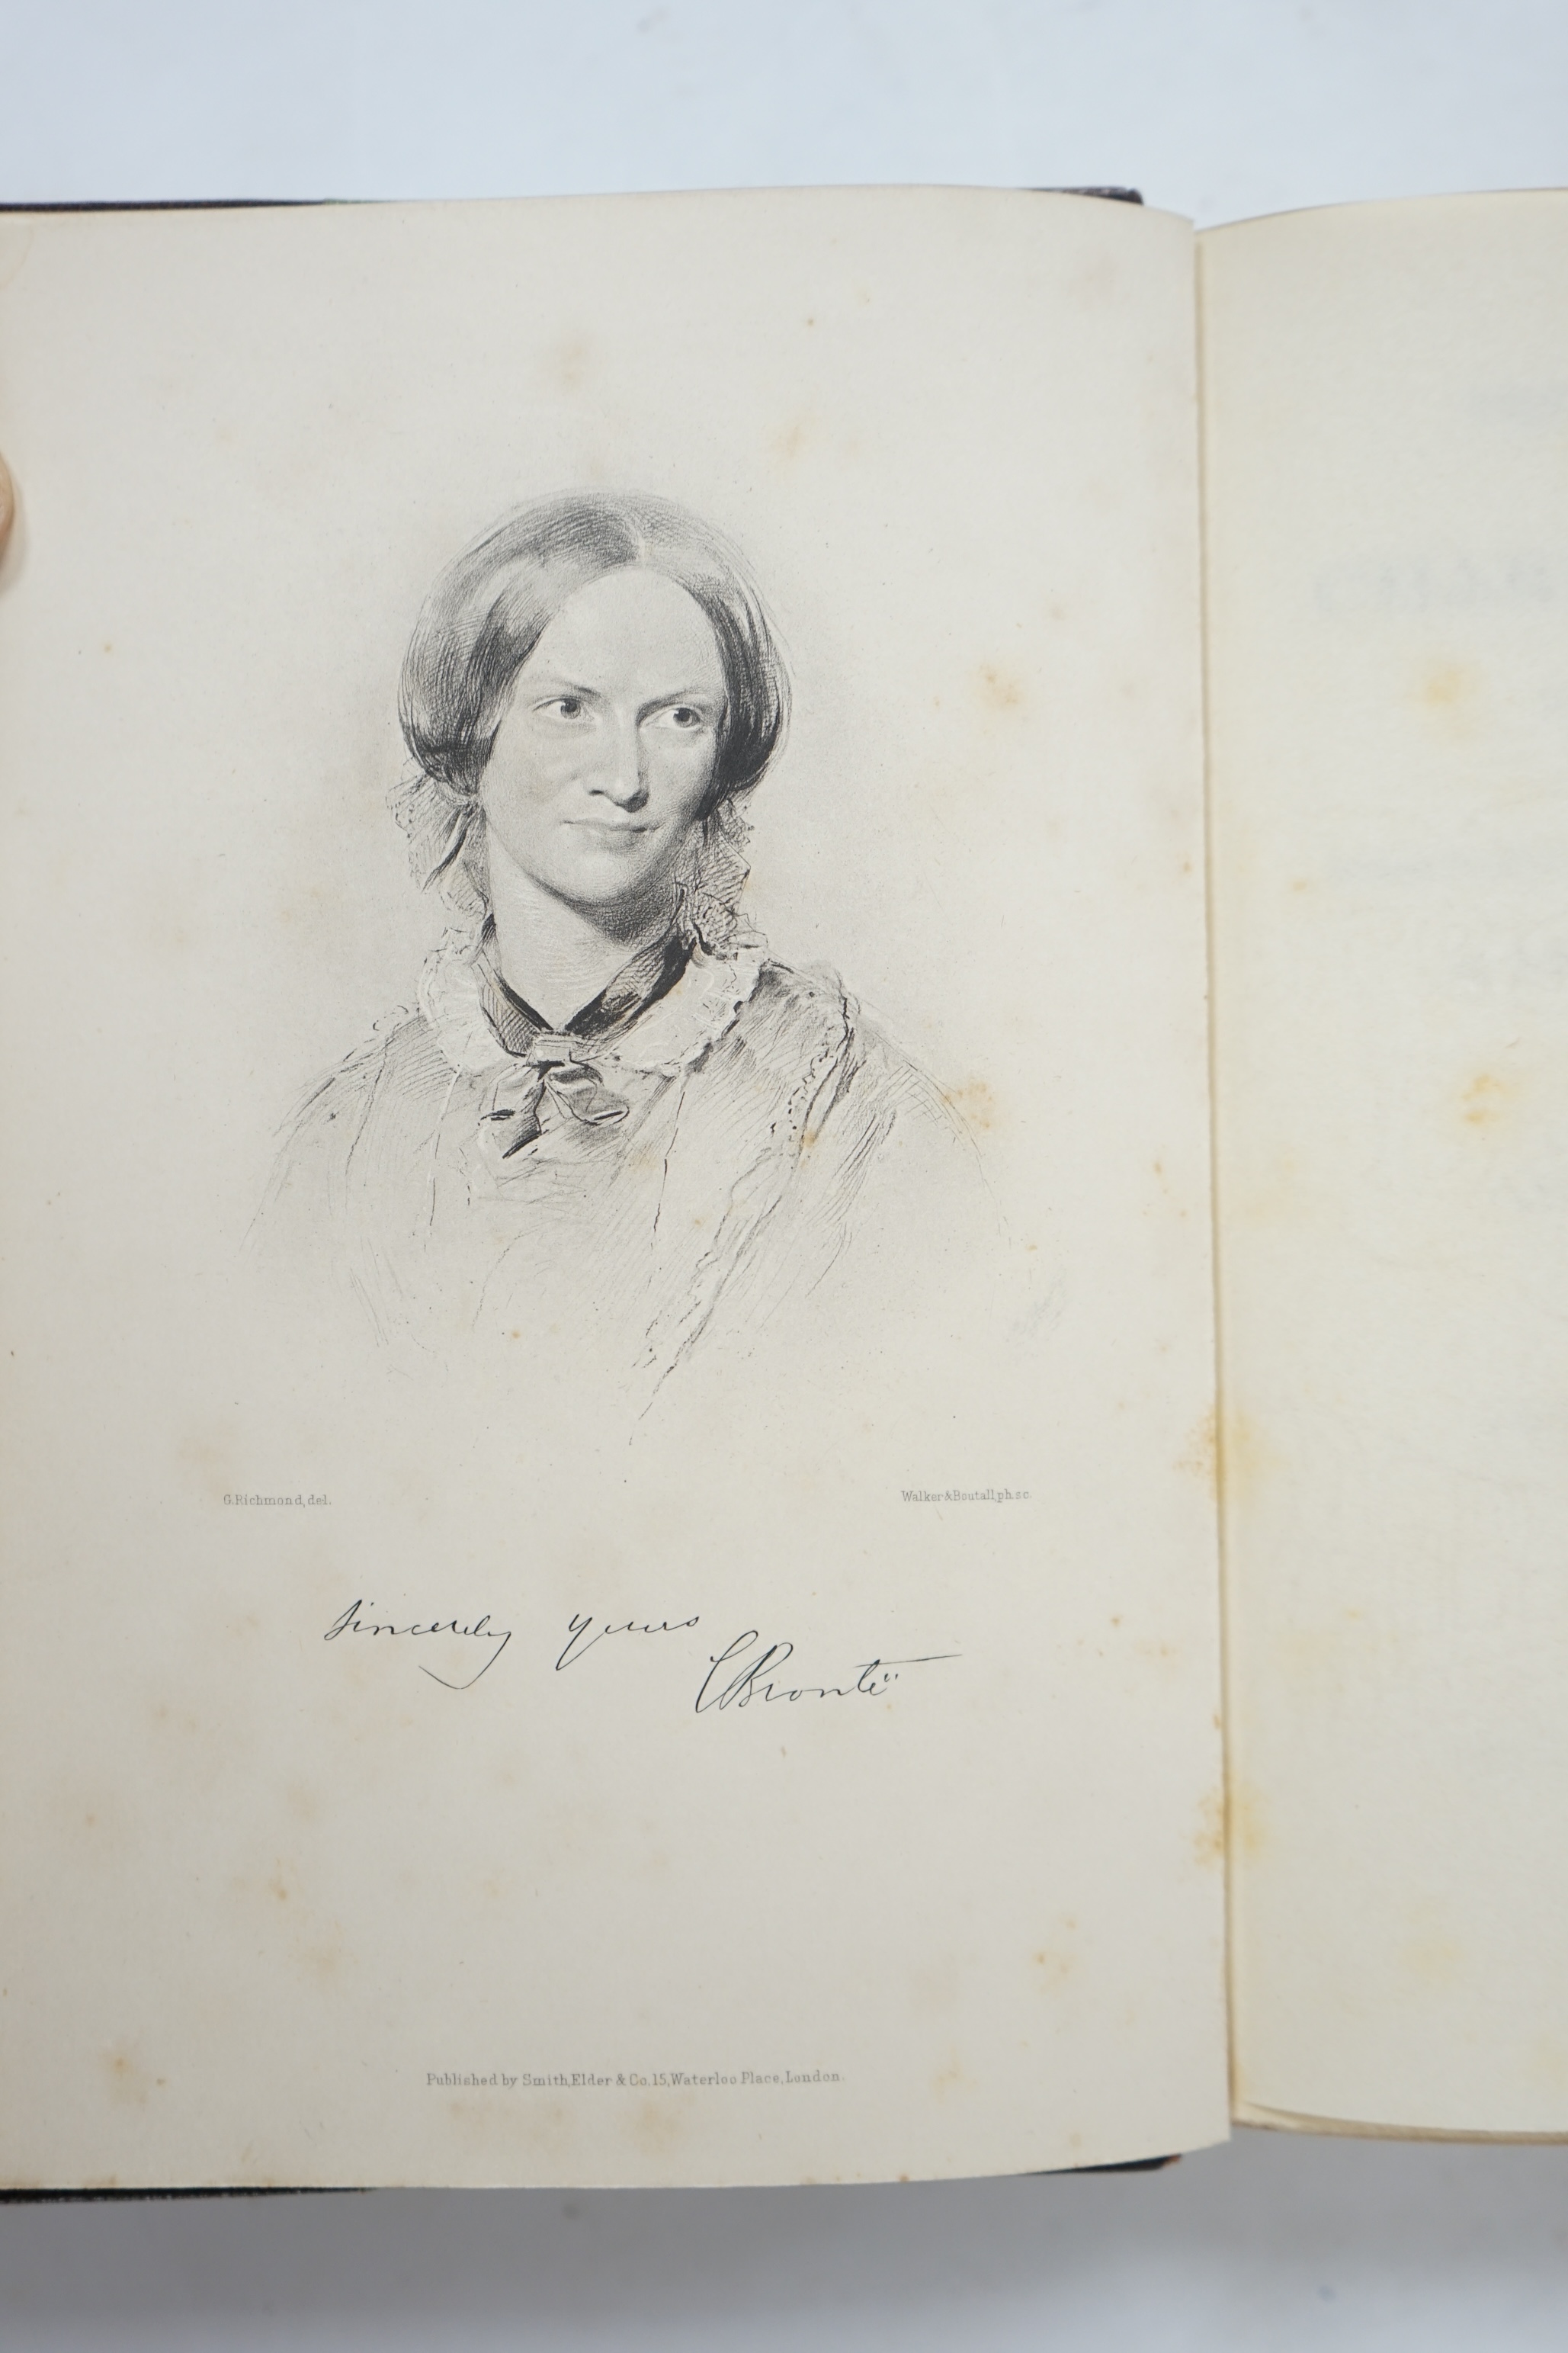 G.Richmond, del.
Walker & Boutall, ph. sc.
Sincerely yours
CBrontë
Published by Smith, Elder & Co. 15, Waterloo Place, London.